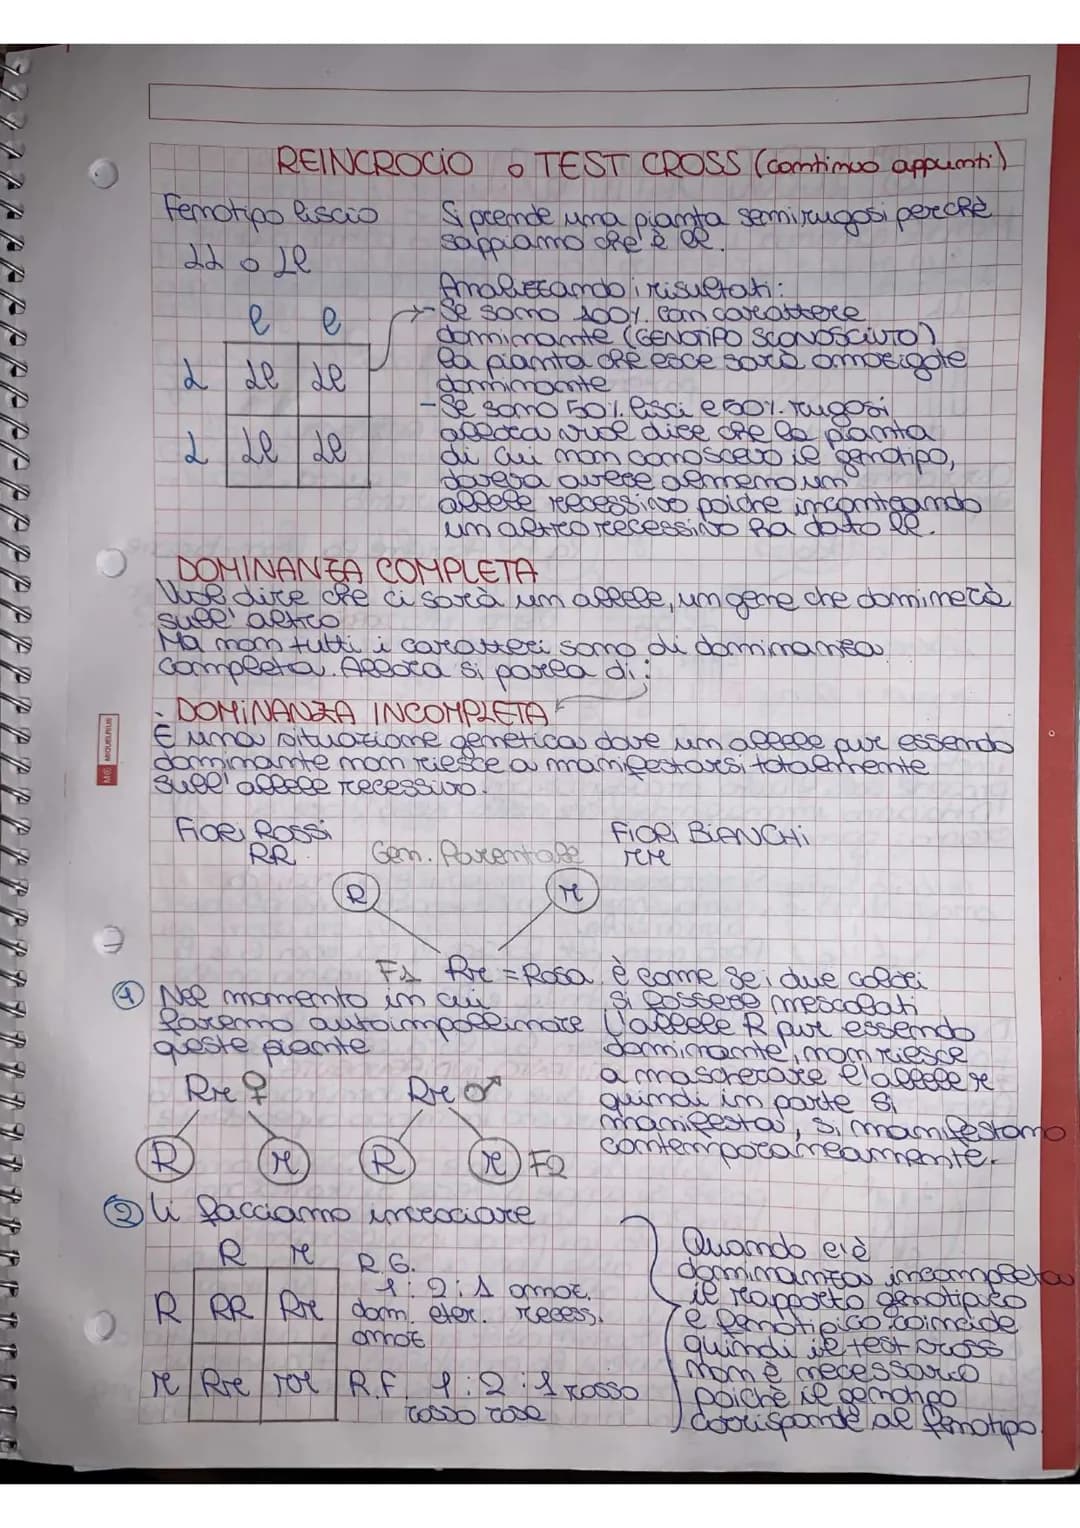 REINCROCIO o TEST CROSS (continuo appunti)
Fenotipo liscio
LL o Ll
Si prende una pianta semi rugosi perché
sappiamo che è ll.
Analizzando i risultati:
- Se sono 100% con carattere
dominante (GENOTIPO SCONOSCIUTO)
la pianta che esce sarà omozigote
dominante
- Se sono 50% lisci e 50% rugosi
allora vuol dire che la pianta
di cui non conoscevo il genotipo,
doveva avere almeno un
allele recessivo poiche incontrando
un altro recessivo ha dato ll.
l l
L Ll Ll
L Ll Ll
DOMINANZA COMPLETA
Vuol dire che ci sarà un allele, un gene che dominerà
sull'altro
Ma non tutti i caratteri sono di dominanza
completa. Allora si parla di:
. DOMINANZA INCOMPLETA
È una situazione genetica dove un allele pur essendo
dominante non riesce a manifestarsi totalmente
sull'allele recessivo.
FIORI ROSSI
RR
Gen. Parentale
FIORI BIANCHI
rr
R r
F1 Rr = Rosa
è come se i due colori
si fossero mescolati
L'allele R pur essendo
dominante, non riesce
a mascherare l'allele r
quindi in parte si
manifesta, si manifestano
contemporaneamente.
1 Nel momento in cui
faremo autoimpollinare
queste piante
Rr ♀ Rr ♂
R r R r F2
2 li facciamo incrociare
R r
R RR Rr
r Rr rr
R.G.
1 : 2 : 1 omoz.
dom. eter. recess.
omoz
R.F. 1 : 2 : 1 rosso
rosso rosa
Quando c'è
dominanza incompleta
il rapporto genotipico
e fenotipico coincide
quindi il test cross
non è necessario
poiché il genotipo
corrisponde al fenotipo.
MIQUELRIUS